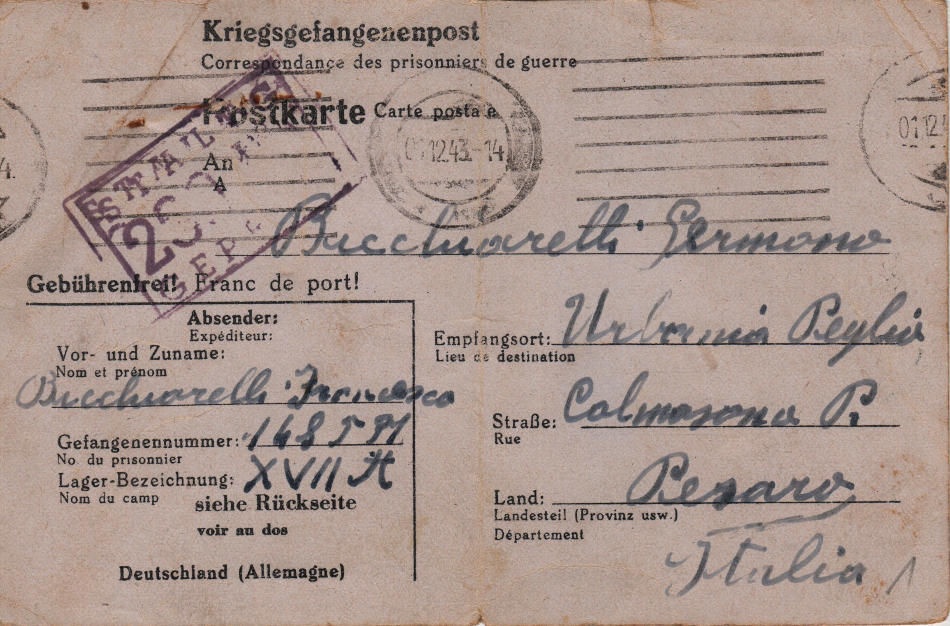 Kriegsgefangenenpost
Correspondance des prisonniers de guerre
Postkarte Carte postale
An
A
01.12.43.-14
01.12.4
STALAG
GEPR
Bucchiarelli Germano
Gebührenfrei! Franc de port!
Absender:
Expéditeur:
Vor- und Zuname:
Nom et prénom
Bucchiarelli Francesco
Gefangenennummer:
No. du prisonnier
Lager-Bezeichnung: XVII A
Nom du camp
siehe Rückseite
voir au dos
Deutschland (Allemagne)
Empfangsort: Urbania Peglio
Lieu de destination
Straße: Colmosono P.
Rue
Land: Pesaro
Landesteil (Provinz usw.)
Département
Italia